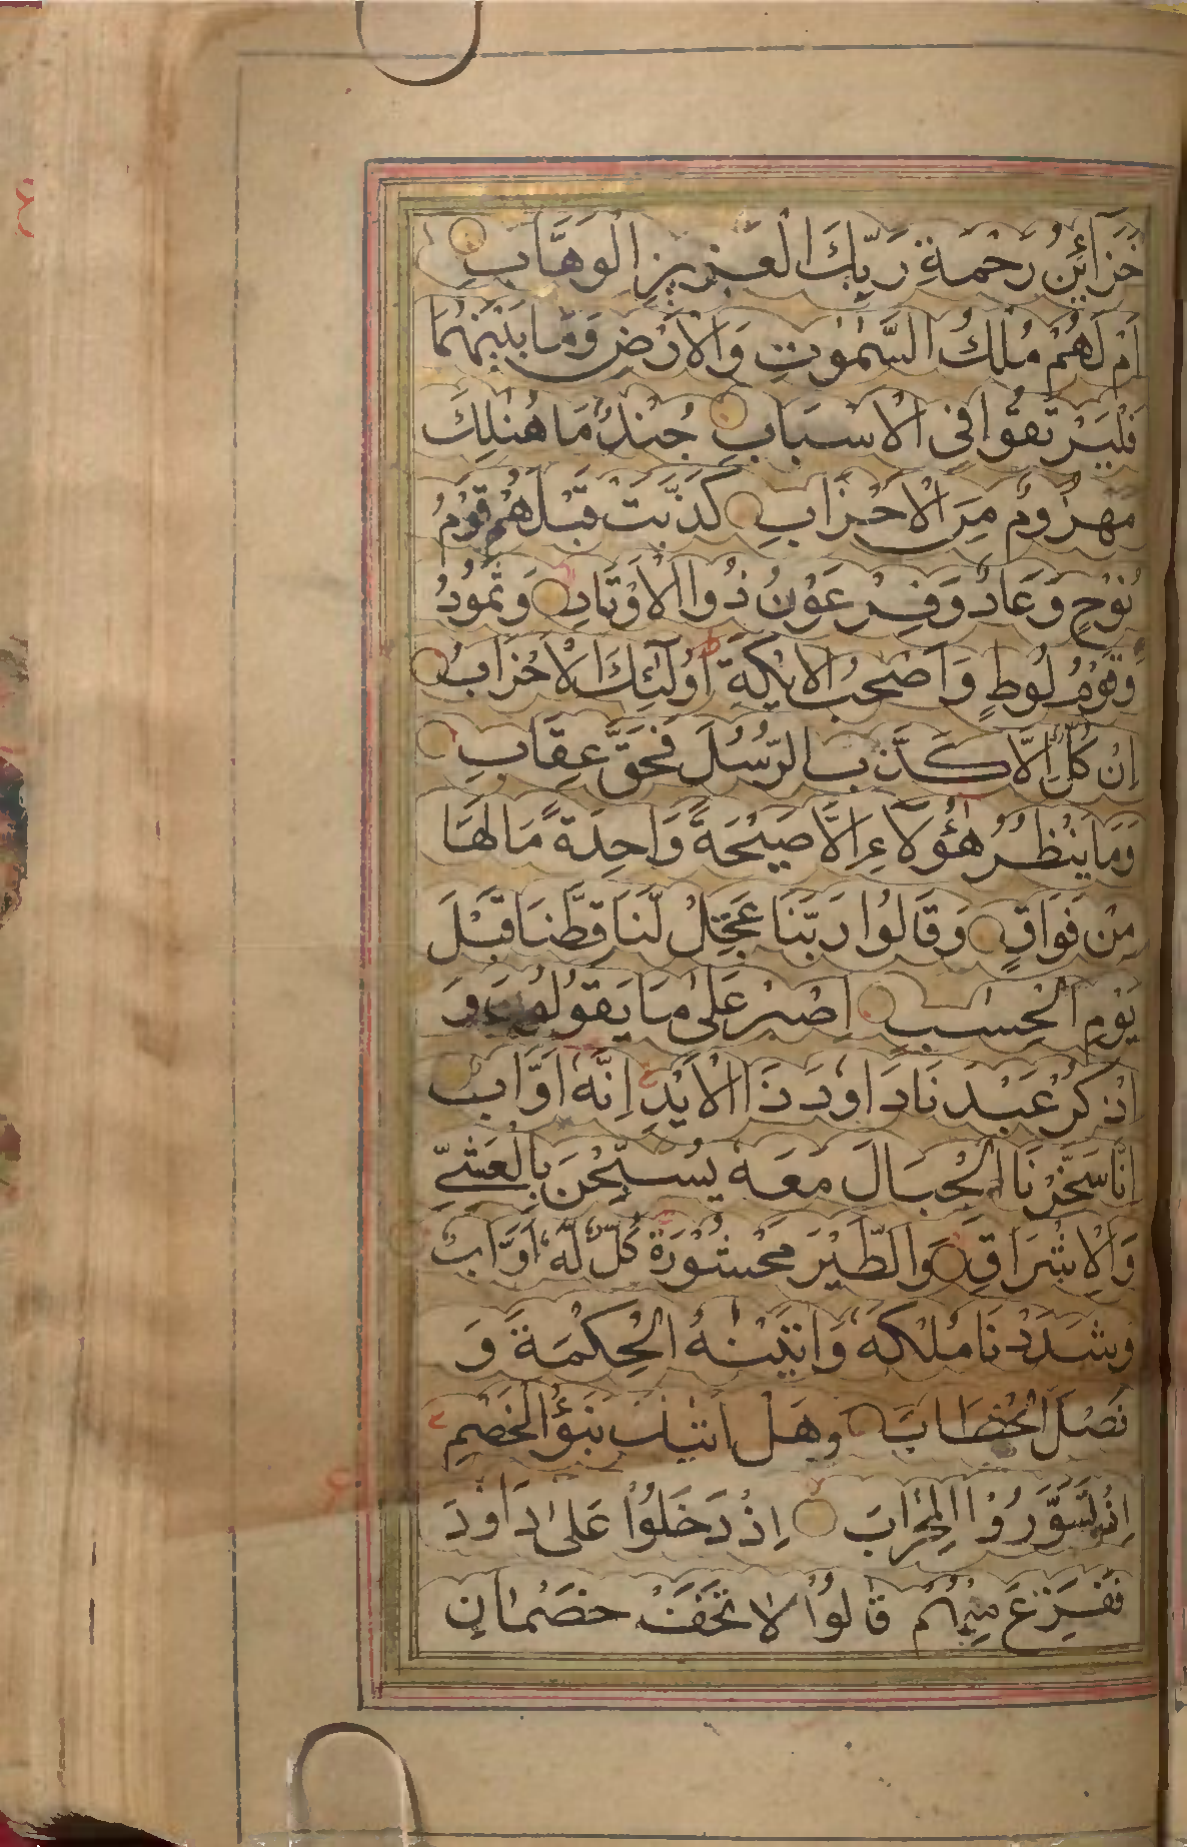 خَزَآئِنُ رَحْمَةِ رَبِّكَ الْعَزِيزِ الْوَهَّابِ
اَمْ لَهُمْ مُلْكُ السَّمٰوٰتِ وَالْاَرْضِ وَمَا بَيْنَهُمَا
فَلْيَرْتَقُوْا فِى الْاَسْبَابِ جُنْدٌ مَا هُنَالِكَ
مَهْزُوْمٌ مِنَ الْاَحْزَابِ كَذَّبَتْ قَبْلَهُمْ قَوْمُ
نُوْحٍ وَعَادٌ وَفِرْعَوْنُ ذُوا الْاَوْتَادِ وَثَمُوْدُ
وَقَوْمُ لُوْطٍ وَاَصْحٰبُ الْاَيْكَةِ اُولٰٓئِكَ الْاَحْزَابُ
اِنْ كُلٌّ اِلَّا كَذَّبَ الرُّسُلَ فَحَقَّ عِقَابِ
وَمَا يَنْظُرُ هٰٓؤُلَآءِ اِلَّا صَيْحَةً وَاحِدَةً مَا لَهَا
مِنْ فَوَاقٍ وَقَالُوْا رَبَّنَا عَجِّلْ لَنَا قِطَّنَا قَبْلَ
يَوْمِ الْحِسَابِ اِصْبِرْ عَلٰى مَا يَقُوْلُوْنَ وَ
اذْكُرْ عَبْدَنَا دَاوٗدَ ذَا الْاَيْدِ اِنَّهٗ اَوَّابٌ
اِنَّا سَخَّرْنَا الْجِبَالَ مَعَهٗ يُسَبِّحْنَ بِالْعَشِيِّ
وَالْاِشْرَاقِ وَالطَّيْرَ مَحْشُوْرَةً كُلٌّ لَهٗ اَوَّابٌ
وَشَدَدْنَا مُلْكَهٗ وَاٰتَيْنٰهُ الْحِكْمَةَ وَ
فَصْلَ الْخِطَابِ وَهَلْ اَتٰىكَ نَبَؤُا الْخَصْمِ
اِذْ تَسَوَّرُوْا الْمِحْرَابَ اِذْ دَخَلُوْا عَلٰى دَاوٗدَ
فَفَزِعَ مِنْهُمْ قَالُوْا لَا تَخَفْ خَصْمَانِ